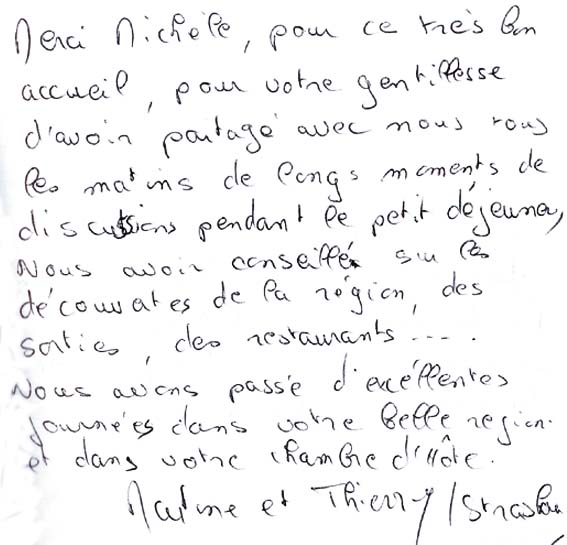 Merci Michèle, pour ce très bon
accueil, pour votre gentillesse
d'avoir partagé avec nous tous
les matins de longs moments de
discussions pendant le petit déjeuner,
Nous avoir conseillé sur les
découvertes de la région, des
sorties, des restaurants.....
Nous avons passé d'excéllentes
journées dans votre belle region.
et dans votre chambre d'hôte.
Martine et Thierry /